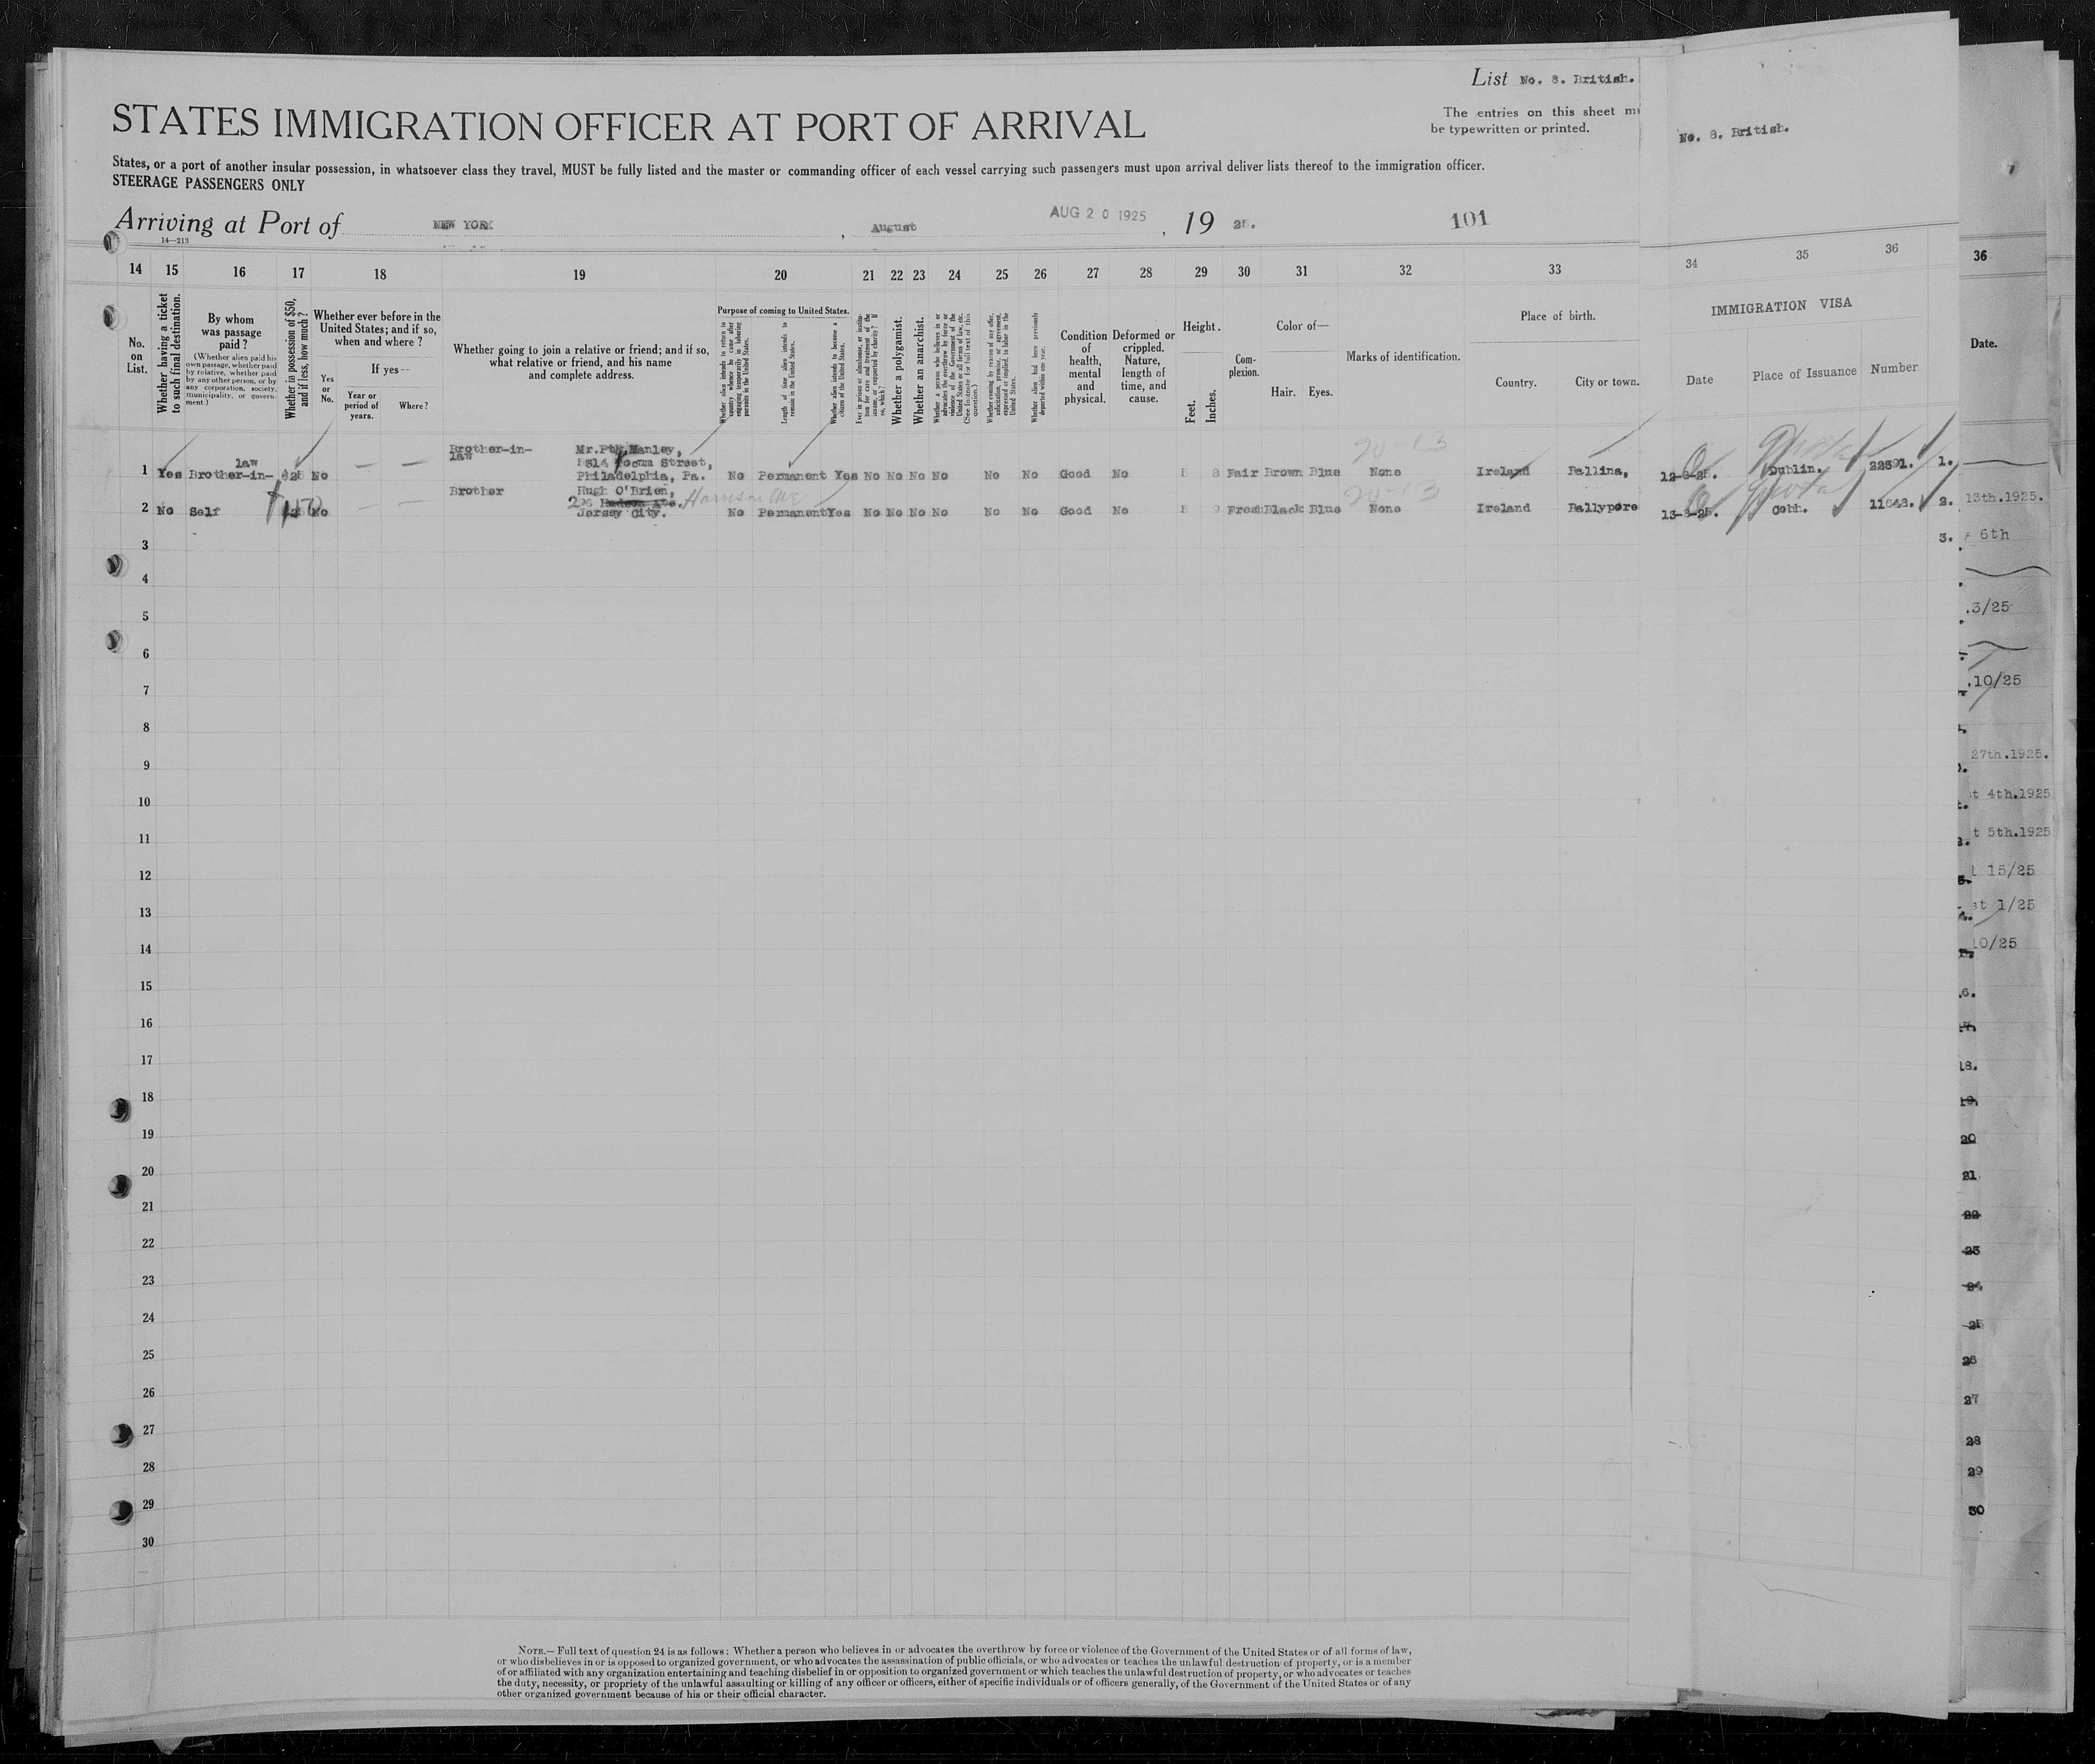 List No. 8. British.
STATES IMMIGRATION OFFICER AT PORT OF ARRIVAL
The entries on this sheet
be typewritten or printed.
No. 8. British.
States, or a port of another insular possession, in whatsoever class they travel, MUST be fully listed and the master or commanding officer of each vessel carrying such passengers must upon arrival deliver lists thereof to the immigration officer.
STEERAGE PASSENGERS ONLY
Arriving at Port of NEW YORK, August AUG 20 1925, 19 25. 101
14—213
14 15 16 17 18 19 20 21 22 23 24 25 26 27 28 29 30 31 32 33 34 35 36
36
No. on List.
Whether having a ticket to such final destination.
By whom was passage paid?
(Whether alien paid his own passage, whether paid by relative, whether paid by any other person, or by any corporation, society, municipality, or government.)
Whether in possession of $50, and if less, how much?
Whether ever before in the United States; and if so, when and where?
Yes or No.
If yes—
Year or period of years.
Where?
Whether going to join a relative or friend; and if so, what relative or friend, and his name and complete address.
Purpose of coming to United States.
Whether alien intends to return to country whence he came after engaging temporarily in laboring pursuits in the United States.
Length of time alien intends to remain in the United States.
Whether alien intends to become a citizen of the United States.
Ever in prison or almshouse, or institution for care and treatment of the insane, or supported by charity? If so, which?
Whether a polygamist.
Whether an anarchist.
Whether a person who believes in or advocates the overthrow by force or violence of the Government of the United States or all forms of law, etc. (See footnote for full text of this question.)
Whether coming by reason of any offer, solicitation, promise, or agreement, expressed or implied, to labor in the United States.
Whether alien had been previously deported within one year.
Condition of health, mental and physical.
Deformed or crippled. Nature, length of time, and cause.
Height.
Feet. Inches.
Complexion.
Color of—
Hair. Eyes.
Marks of identification.
Place of birth.
Country. City or town.
IMMIGRATION VISA
Date Place of Issuance Number
Date.
Brother-in-law Mr. Manley,
Street,
1 Yes Brother-in-law No Philadelphia, Pa. No Permanent Yes No No No No No No Good No 5 8 Fair Brown Blue 20-13 None Ireland Ballina, Quota Dublin. 22391. 1.
Brother Hugh O'Brien,
Harrison Ave
2 No Self No Jersey City. No Permanent Yes No No No No No No Good No 5 9 Fresh Black Blue 20-13 None Ireland Quota Cobh. 11643. 2. 13th.1925.
3 3. 6th
4
5 .3/25
6
7 .10/25
8
9 27th.1925.
10 t 4th.1925
11 t 5th.1925
12 15/25
13 st 1/25
14 10/25
15 6.
16
17 18.
18 19.
19 20
20 21
21 22
22 23
23 24
24 25
25 26
26 27
27 28
28 29
29 30
30
NOTE.—Full text of question 24 is as follows: Whether a person who believes in or advocates the overthrow by force or violence of the Government of the United States or of all forms of law,
or who disbelieves in or is opposed to organized government, or who advocates the assassination of public officials, or who advocates or teaches the unlawful destruction of property, or is a member
of or affiliated with any organization entertaining and teaching disbelief in or opposition to organized government or which teaches the unlawful destruction of property, or who advocates or teaches
the duty, necessity, or propriety of the unlawful assaulting or killing of any officer or officers, either of specific individuals or of officers generally, of the Government of the United States or of any
other organized government because of his or their official character.